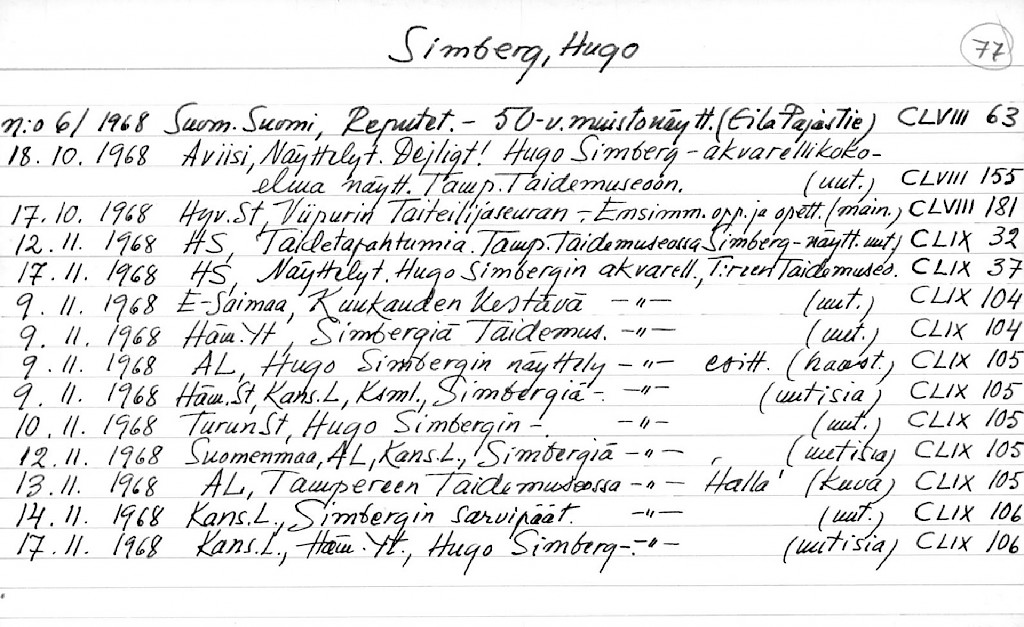 Simberg, Hugo
77
n:o 6/ 1968 Suom. Suomi, Reputet. - 50-v. muistonäytt. (Eila Pajastie) CLVIII 63
18. 10. 1968 Aviisi, Näyttelyt. Dejligt! Hugo Simberg - akvarellikoko-
elma näytt. Tamp. Taidemuseoon. (uut.) CLVIII 155
17. 10. 1968 Hyv. St, Viipurin Taiteilijaseuran - Ensimm. opp. ja opett. (main.) CLVIII 181
12. 11. 1968 HS, Taidetapahtumia. Tamp. Taidemuseossa Simberg-näytt. uut) CLIX 32
17. 11. 1968 HS, Näyttelyt. Hugo Simbergin akvarell, T:reen Taidemuseo. CLIX 37
9. 11. 1968 E-Saimaa, Kuukauden Kestävä -"- (uut.) CLIX 104
9. 11. 1968 Häm. Yt, Simbergiä Taidemus. -"- (uut.) CLIX 104
9. 11. 1968 AL, Hugo Simbergin näyttely -"- esitt. (haast.) CLIX 105
9. 11. 1968 Häm. St, Kans. L, Ksml., Simbergiä -. -"- (uutisia) CLIX 105
10. 11. 1968 Turun St, Hugo Simbergin - -"- (uut.) CLIX 105
12. 11. 1968 Suomenmaa, AL, Kans. L., Simbergiä -"- (uutisia) CLIX 105
13. 11. 1968 AL, Tampereen Taidemuseossa -"- 'Halla' (kuva) CLIX 105
14. 11. 1968 Kans. L., Simbergin sarvipäät. -"- (uut.) CLIX 106
17. 11. 1968 Kans. L., Häm. Yt., Hugo Simberg -. -"- (uutisia) CLIX 106